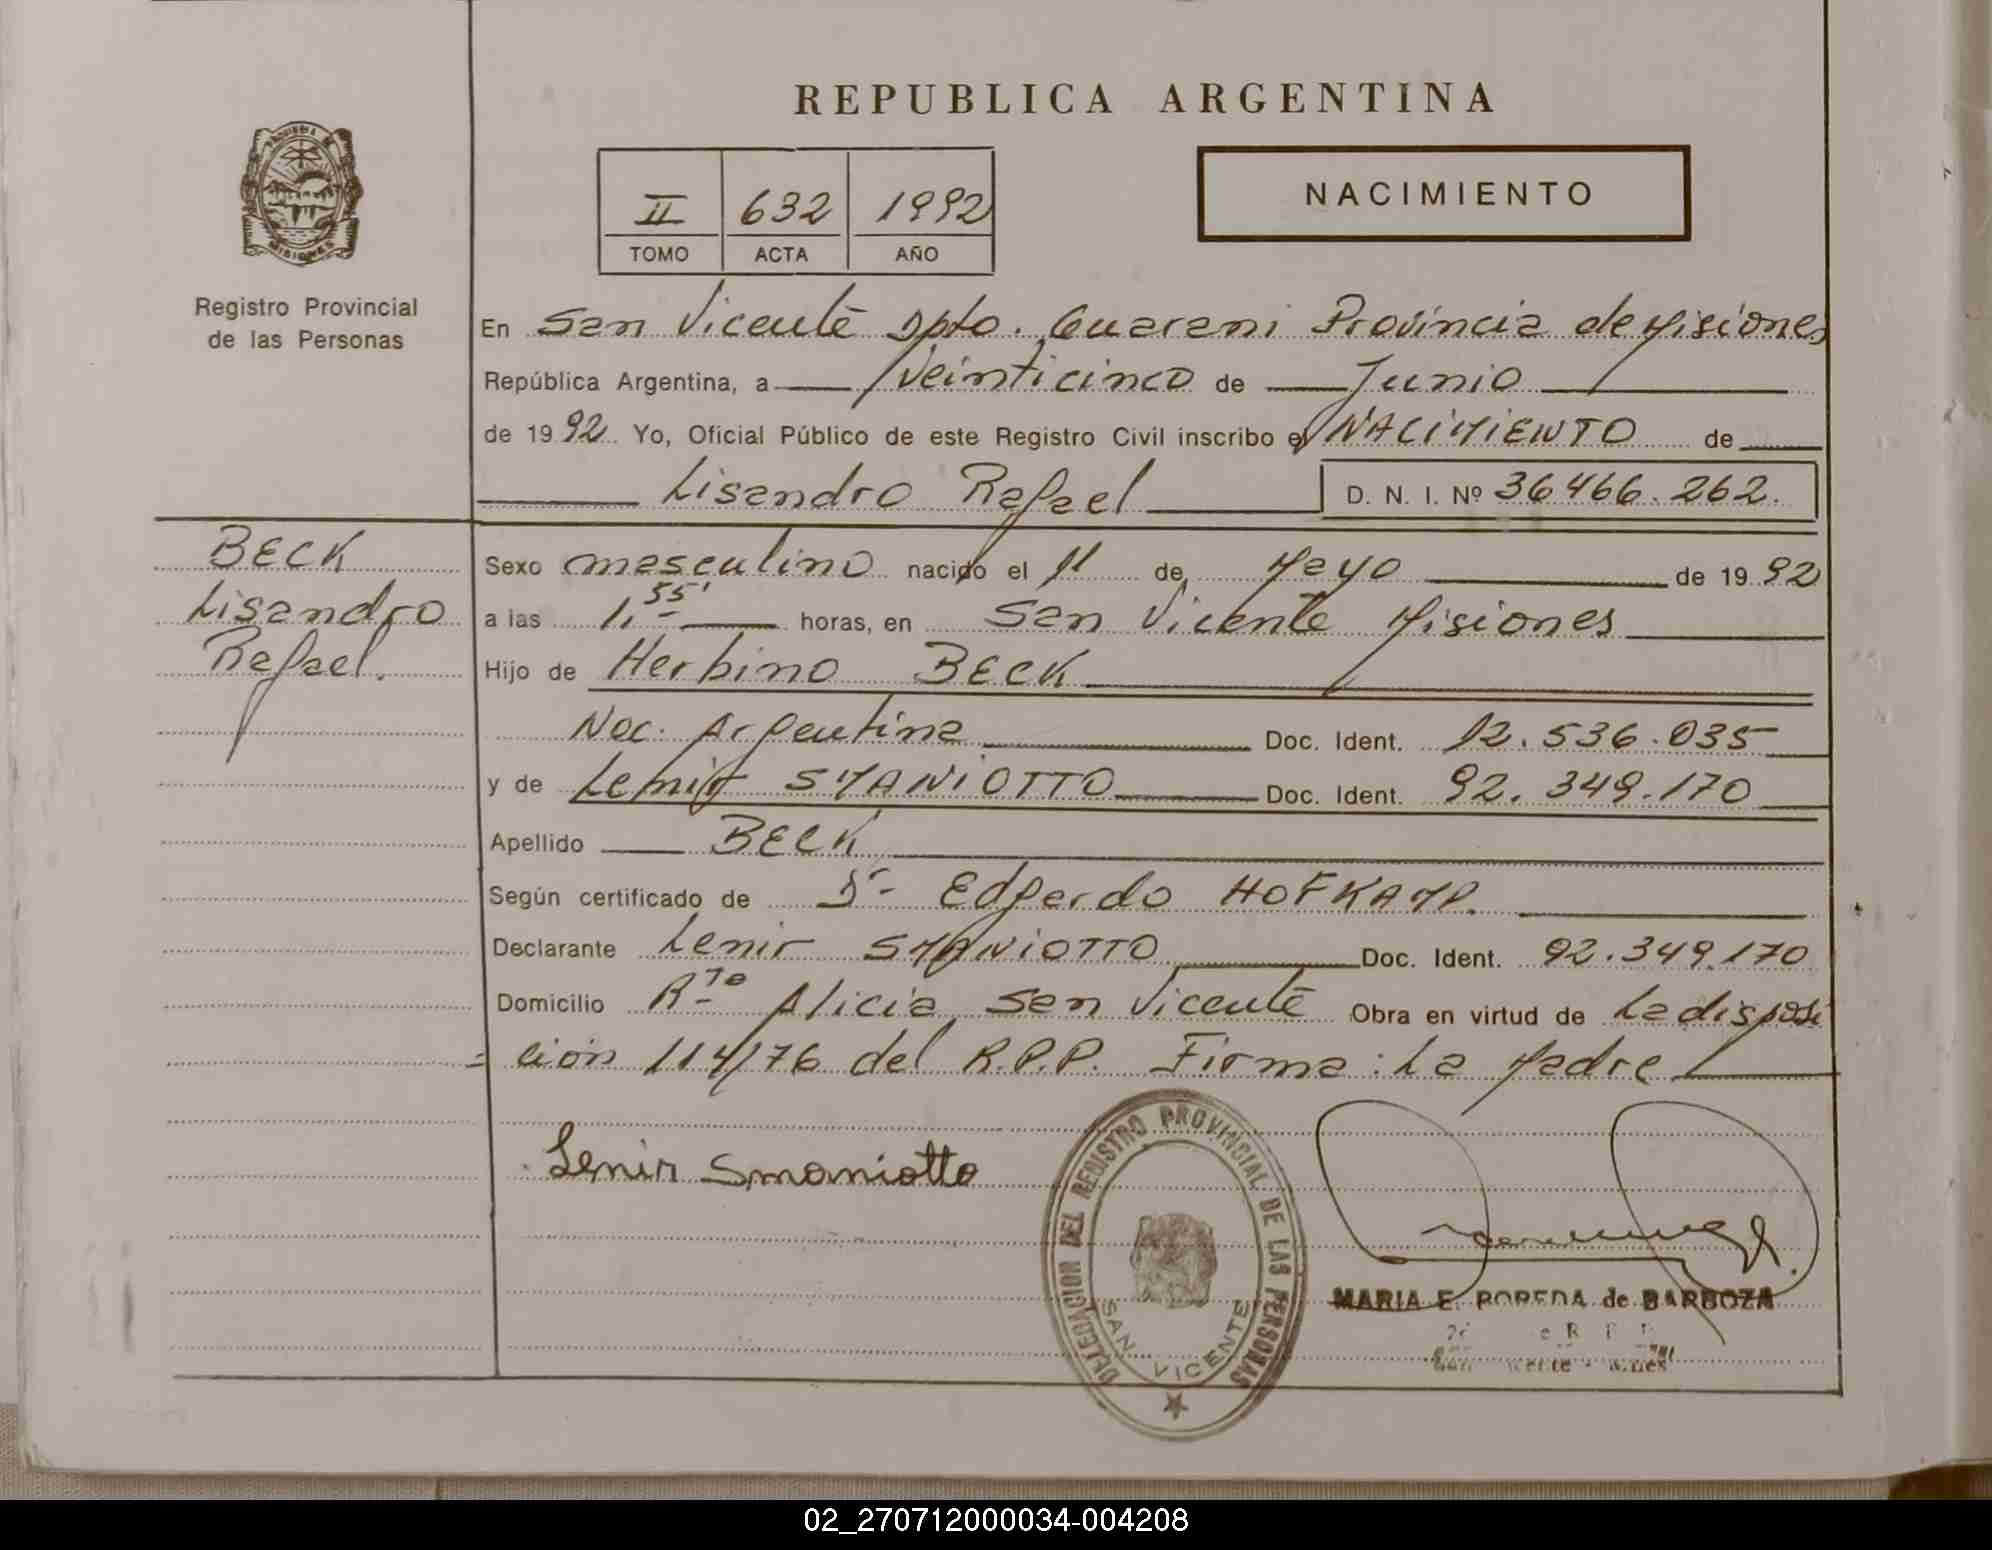 REPUBLICA ARGENTINA
PROVINCIA DE
MISIONES
Registro Provincial
de las Personas
II 632 1992
TOMO ACTA AÑO
NACIMIENTO
En San Vicente Dpto. Guarani Provincia de Misiones
República Argentina, a veinticinco de Junio
de 1992. Yo, Oficial Público de este Registro Civil inscribo el NACIMIENTO de
Lisandro Rafael D. N. I. Nº 36466.262.
BECK
Lisandro
Rafael.
Sexo masculino nacido el 11 de Mayo de 1992
a las 1,55' horas, en San Vicente Misiones
Hijo de Herbino BECK
Nac. Argentina Doc. Ident. 12.536.035
y de Lenir SMANIOTTO Doc. Ident. 92.349.170
Apellido BECK
Según certificado de Dr- Edgardo HOFKAMP.
Declarante Lenir SMANIOTTO Doc. Ident. 92.349.170
Domicilio Rto Alicia San Vicente Obra en virtud de La disposi
=ción 114/76 del R.P.P. Firma: La Madre
Lenir Smaniotto
DELEGACION DEL REGISTRO PROVINCIAL DE LAS PERSONAS
SAN VICENTE
MARIA E. POREDA de BARBOZA
02_270712000034-004208